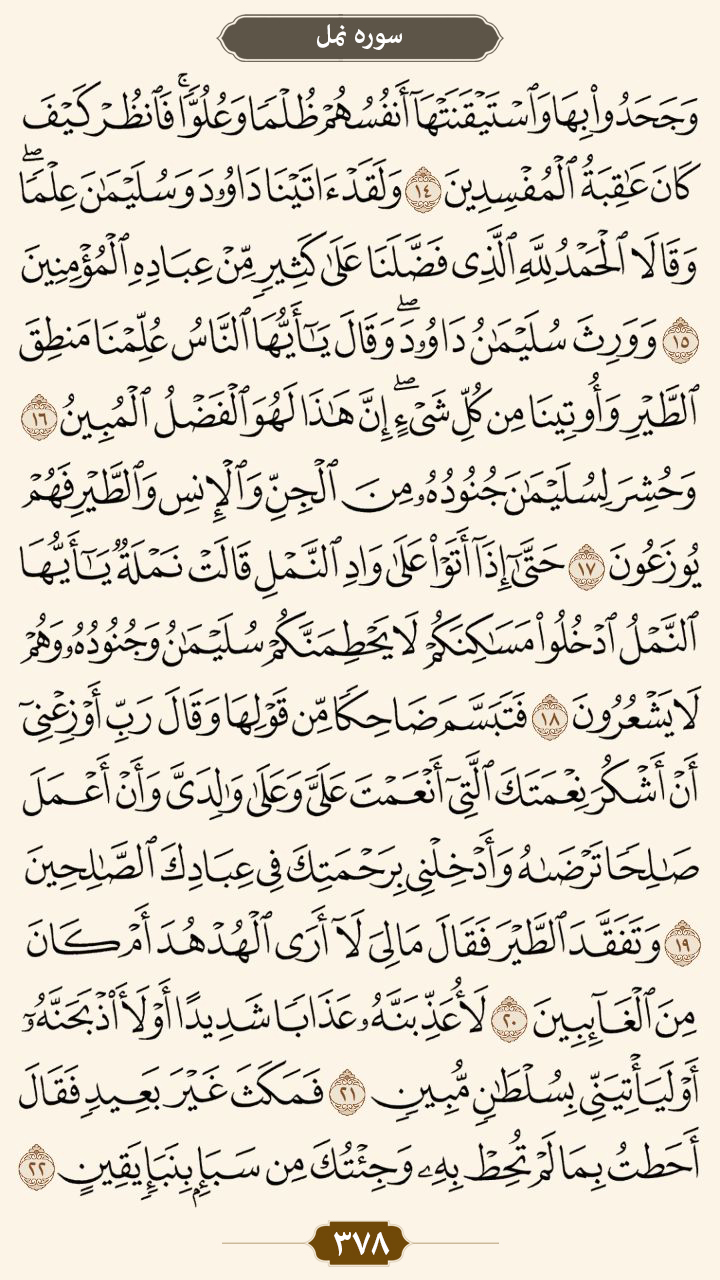 سوره نمل
وَجَحَدُوا۟ بِهَا وَٱسْتَيْقَنَتْهَآ أَنفُسُهُمْ ظُلْمًا وَعُلُوًّا ۚ فَٱنظُرْ كَيْفَ
كَانَ عَـٰقِبَةُ ٱلْمُفْسِدِينَ ١٤ وَلَقَدْ ءَاتَيْنَا دَاوُۥدَ وَسُلَيْمَـٰنَ عِلْمًا ۖ
وَقَالَا ٱلْحَمْدُ لِلَّهِ ٱلَّذِى فَضَّلَنَا عَلَىٰ كَثِيرٍ مِّنْ عِبَادِهِ ٱلْمُؤْمِنِينَ
١٥ وَوَرِثَ سُلَيْمَـٰنُ دَاوُۥدَ ۖ وَقَالَ يَـٰٓأَيُّهَا ٱلنَّاسُ عُلِّمْنَا مَنطِقَ
ٱلطَّيْرِ وَأُوتِينَا مِن كُلِّ شَىْءٍ ۖ إِنَّ هَـٰذَا لَهُوَ ٱلْفَضْلُ ٱلْمُبِينُ ١٦
وَحُشِرَ لِسُلَيْمَـٰنَ جُنُودُهُۥ مِنَ ٱلْجِنِّ وَٱلْإِنسِ وَٱلطَّيْرِ فَهُمْ
يُوزَعُونَ ١٧ حَتَّىٰٓ إِذَآ أَتَوْا۟ عَلَىٰ وَادِ ٱلنَّمْلِ قَالَتْ نَمْلَةٌ يَـٰٓأَيُّهَا
ٱلنَّمْلُ ٱدْخُلُوا۟ مَسَـٰكِنَكُمْ لَا يَحْطِمَنَّكُمْ سُلَيْمَـٰنُ وَجُنُودُهُۥ وَهُمْ
لَا يَشْعُرُونَ ١٨ فَتَبَسَّمَ ضَاحِكًا مِّن قَوْلِهَا وَقَالَ رَبِّ أَوْزِعْنِىٓ
أَنْ أَشْكُرَ نِعْمَتَكَ ٱلَّتِىٓ أَنْعَمْتَ عَلَىَّ وَعَلَىٰ وَٰلِدَىَّ وَأَنْ أَعْمَلَ
صَـٰلِحًا تَرْضَىٰهُ وَأَدْخِلْنِى بِرَحْمَتِكَ فِى عِبَادِكَ ٱلصَّـٰلِحِينَ
١٩ وَتَفَقَّدَ ٱلطَّيْرَ فَقَالَ مَالِىَ لَآ أَرَى ٱلْهُدْهُدَ أَمْ كَانَ
مِنَ ٱلْغَآئِبِينَ ٢٠ لَأُعَذِّبَنَّهُۥ عَذَابًا شَدِيدًا أَوْ لَأَا۟ذْبَحَنَّهُۥٓ
أَوْ لَيَأْتِيَنِّى بِسُلْطَـٰنٍ مُّبِينٍ ٢١ فَمَكَثَ غَيْرَ بَعِيدٍ فَقَالَ
أَحَطتُ بِمَا لَمْ تُحِطْ بِهِۦ وَجِئْتُكَ مِن سَبَإٍۭ بِنَبَإٍ يَقِينٍ ٢٢
٣٧٨